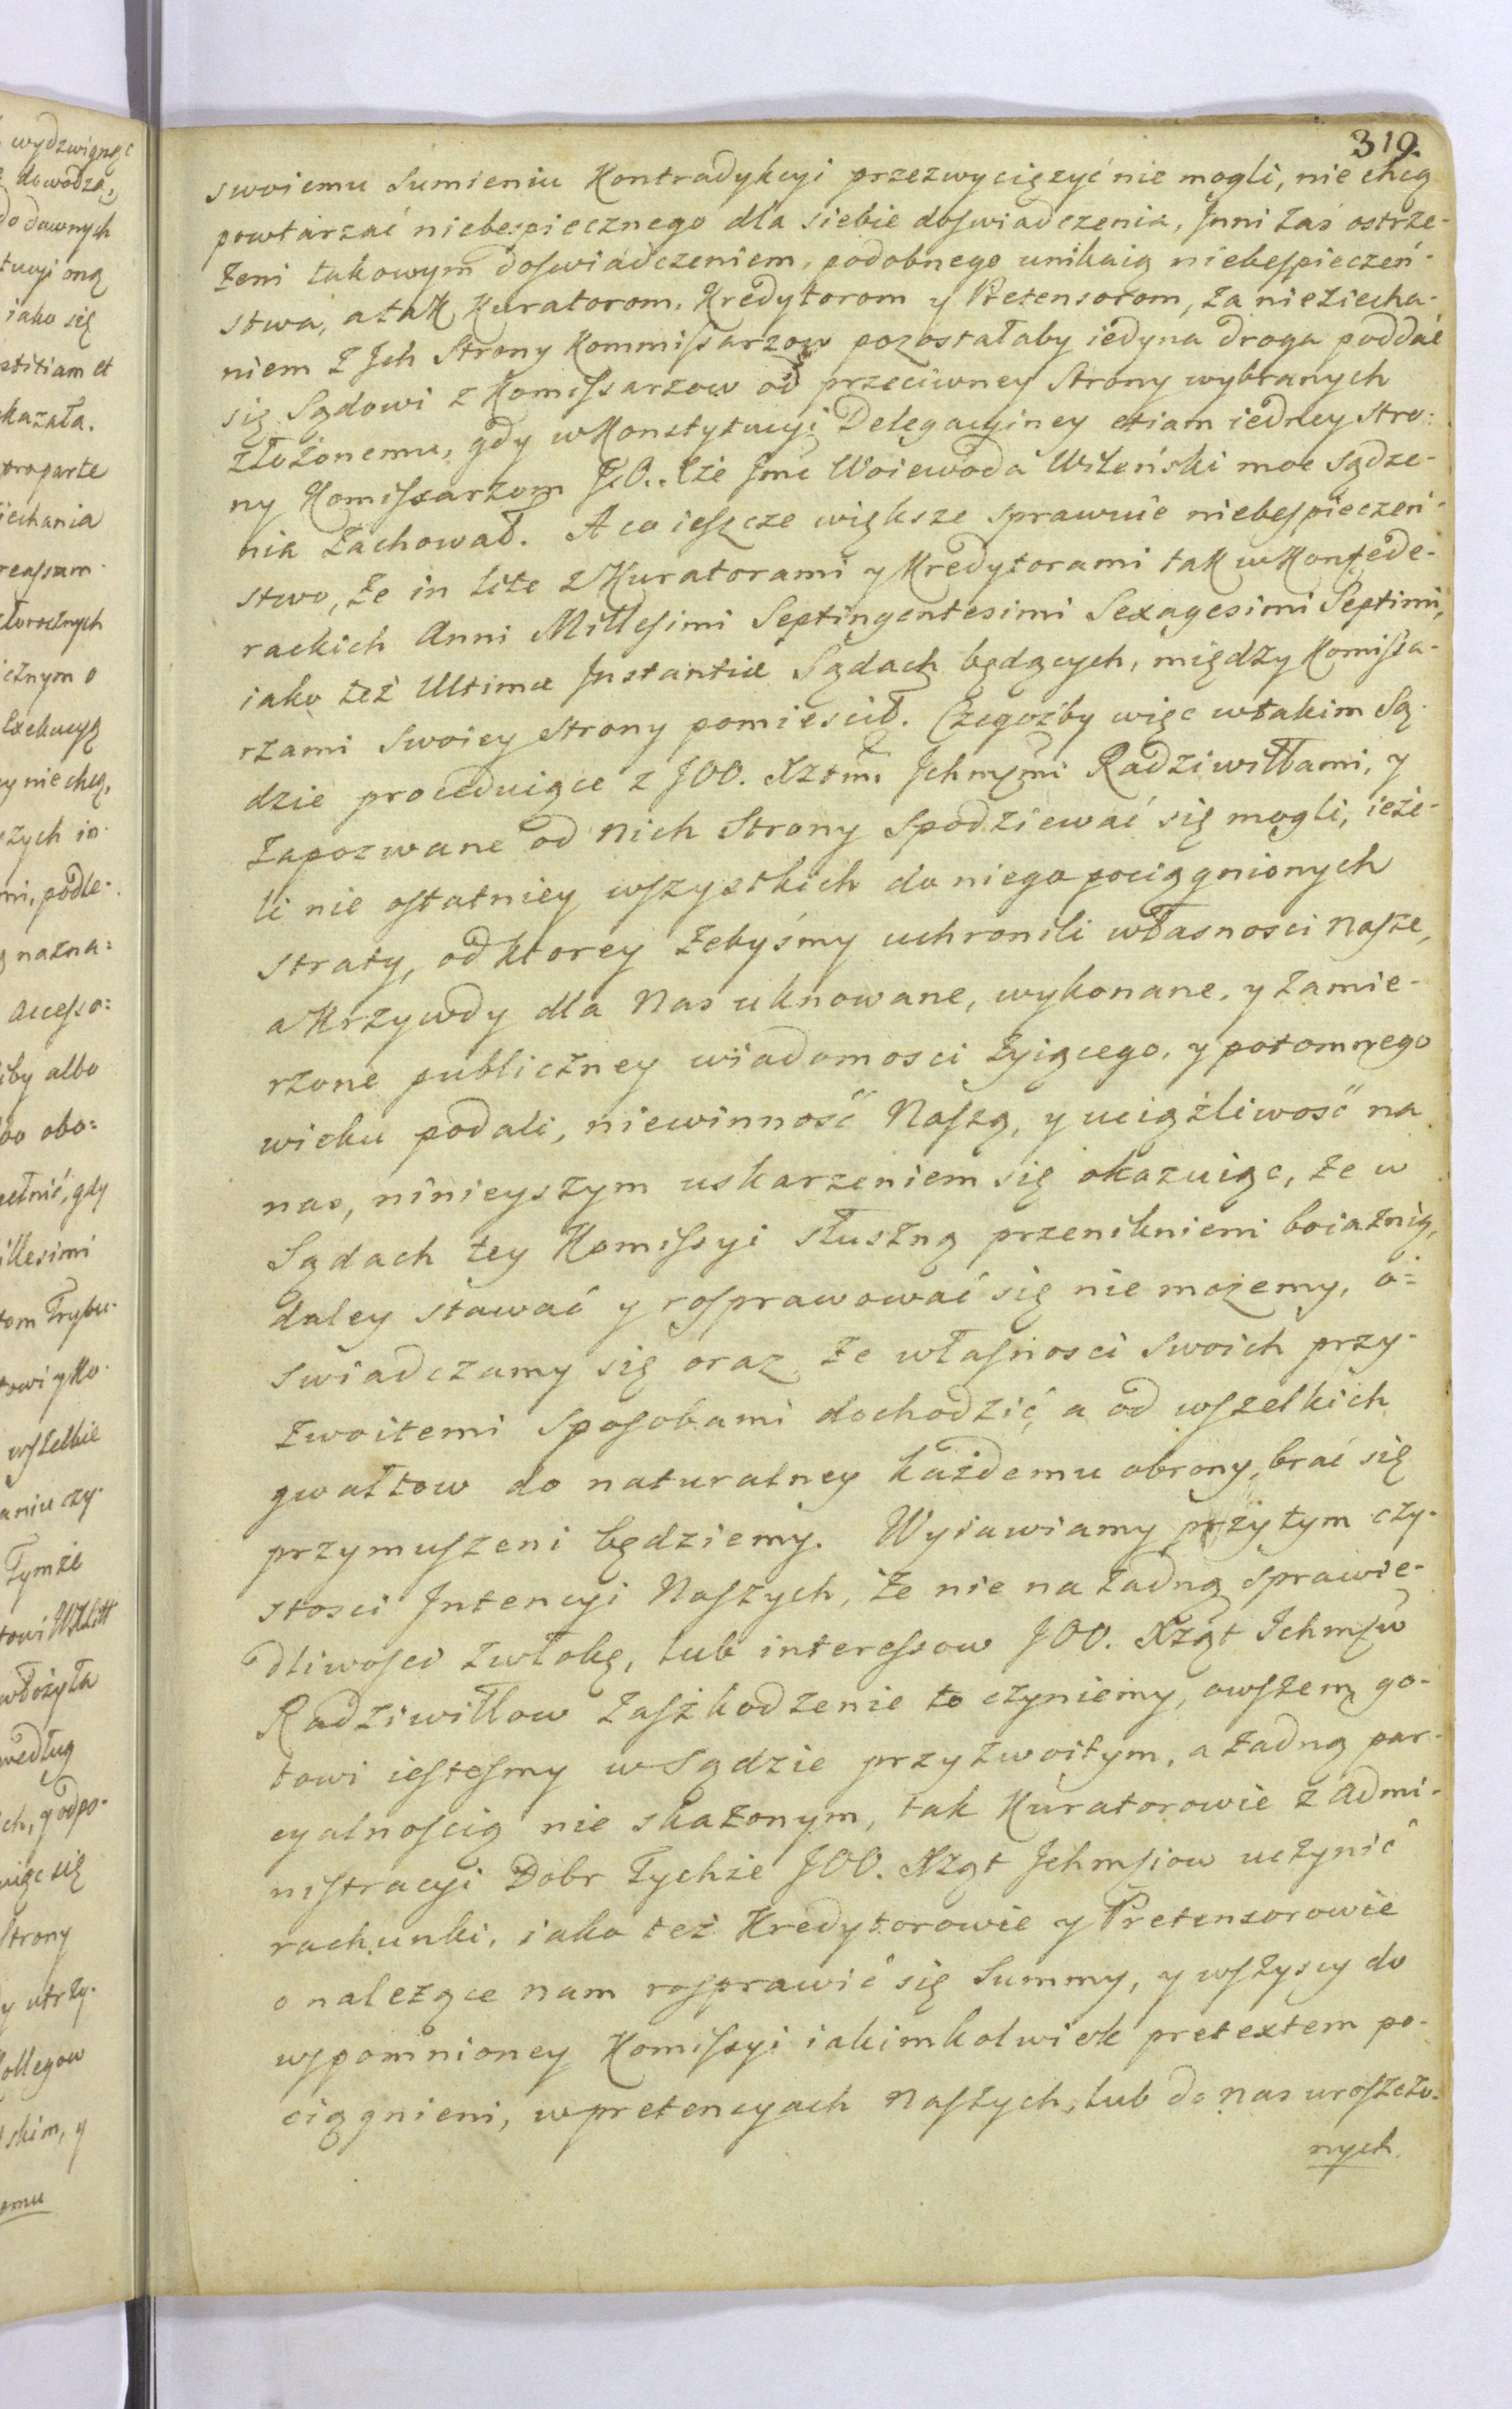 319.
swoiemu Sumieniu Kontradykcyi przezwyciężyć nie mogli, nie chcą
powtarzać niebespiecznego dla siebie doswiadczenia, Jnni zas ostrze-
żeni takowym doswiadczeniem, podobnego unikaią niebespieczeń-
stwa, a tak Kuratorom, Kredytorom y Pretensorom, za nieziecha-
niem z Jch Strony Kommissarzow pozostałaby iedyna droga poddać
się Sądowi z Komissarzow od przeciwney Strony wybranych
złożonemu, gdy w Konstytucyi Delegacyiney etiam iedney stro-
ny Komissarzom J.O. Xże Jmć Woiewoda Wileński moc sądze-
nia zachował. A co ieszcze większe sprawuie niebespieczeń-
stwo, że in lite z Kuratorami y Kredytorami tak w Konfede-
rackich Anni Millesimi Septingentesimi Sexagesimi Septimi,
iako też Ultimæ Jnstantiæ Sądach będących, między Komissa-
rzami Swoiey strony pomiescił. Czegoźby więc w takim Są-
dzie proceduiące z JOO. Xztmi Jchmśmi Radziwiłłami, y
zapozwane od nich Strony Spodziewać się mogli, ieże-
li nie ostatniey wszystkich do niego pociągnionych
straty, od ktorey żebyśmy uchronili własnosci nasze,
a Krzywdy dla Nas uknowane, wykonane, y zamie-
rzone publiczney wiadomosci żyiącego, y potomnego
wieku podali, niewinność Naszą, y uciążliwość na
nas, ninieyszym uskarzeniem się okazuiąc, że w
Sądach tey Komissyi słuszną przeniknieni boiaznią,
daley stawać y rosprawować się nie możemy, o-
swiadczamy się oraz że własnosci swoich przy-
zwoitemi Sposobami dochodzić a od wszelkich
gwałtow do naturalney każdemu obrony, brać się
przymuszeni będziemy. Wyiawiamy przytym czy-
stosci Jntencyi Naszych, że nie na żadną sprawie-
dliwosci zwłokę, lub interessow JOO. Xząt Jchmśw
Radziwiłłow zaszkodzenie to czyniemy, owszem go-
towi iestesmy w Sądzie przyzwoitym, a żadną par-
cyalnoscią nie skażonym, tak Kuratorowie z Admi-
nistracyi Dobr Tychże JOO. Xząt Jchmsiow uczynić
rachunki, iako też Kredytorowie y Pretensorowie
o należące nam rosprawić się Summy, y wszyscy do
wspomnioney Komissyi iakimkolwiek pretextem po-
ciągnieni, w pretencyach Naszych, lub do nas uroszczo-
nych